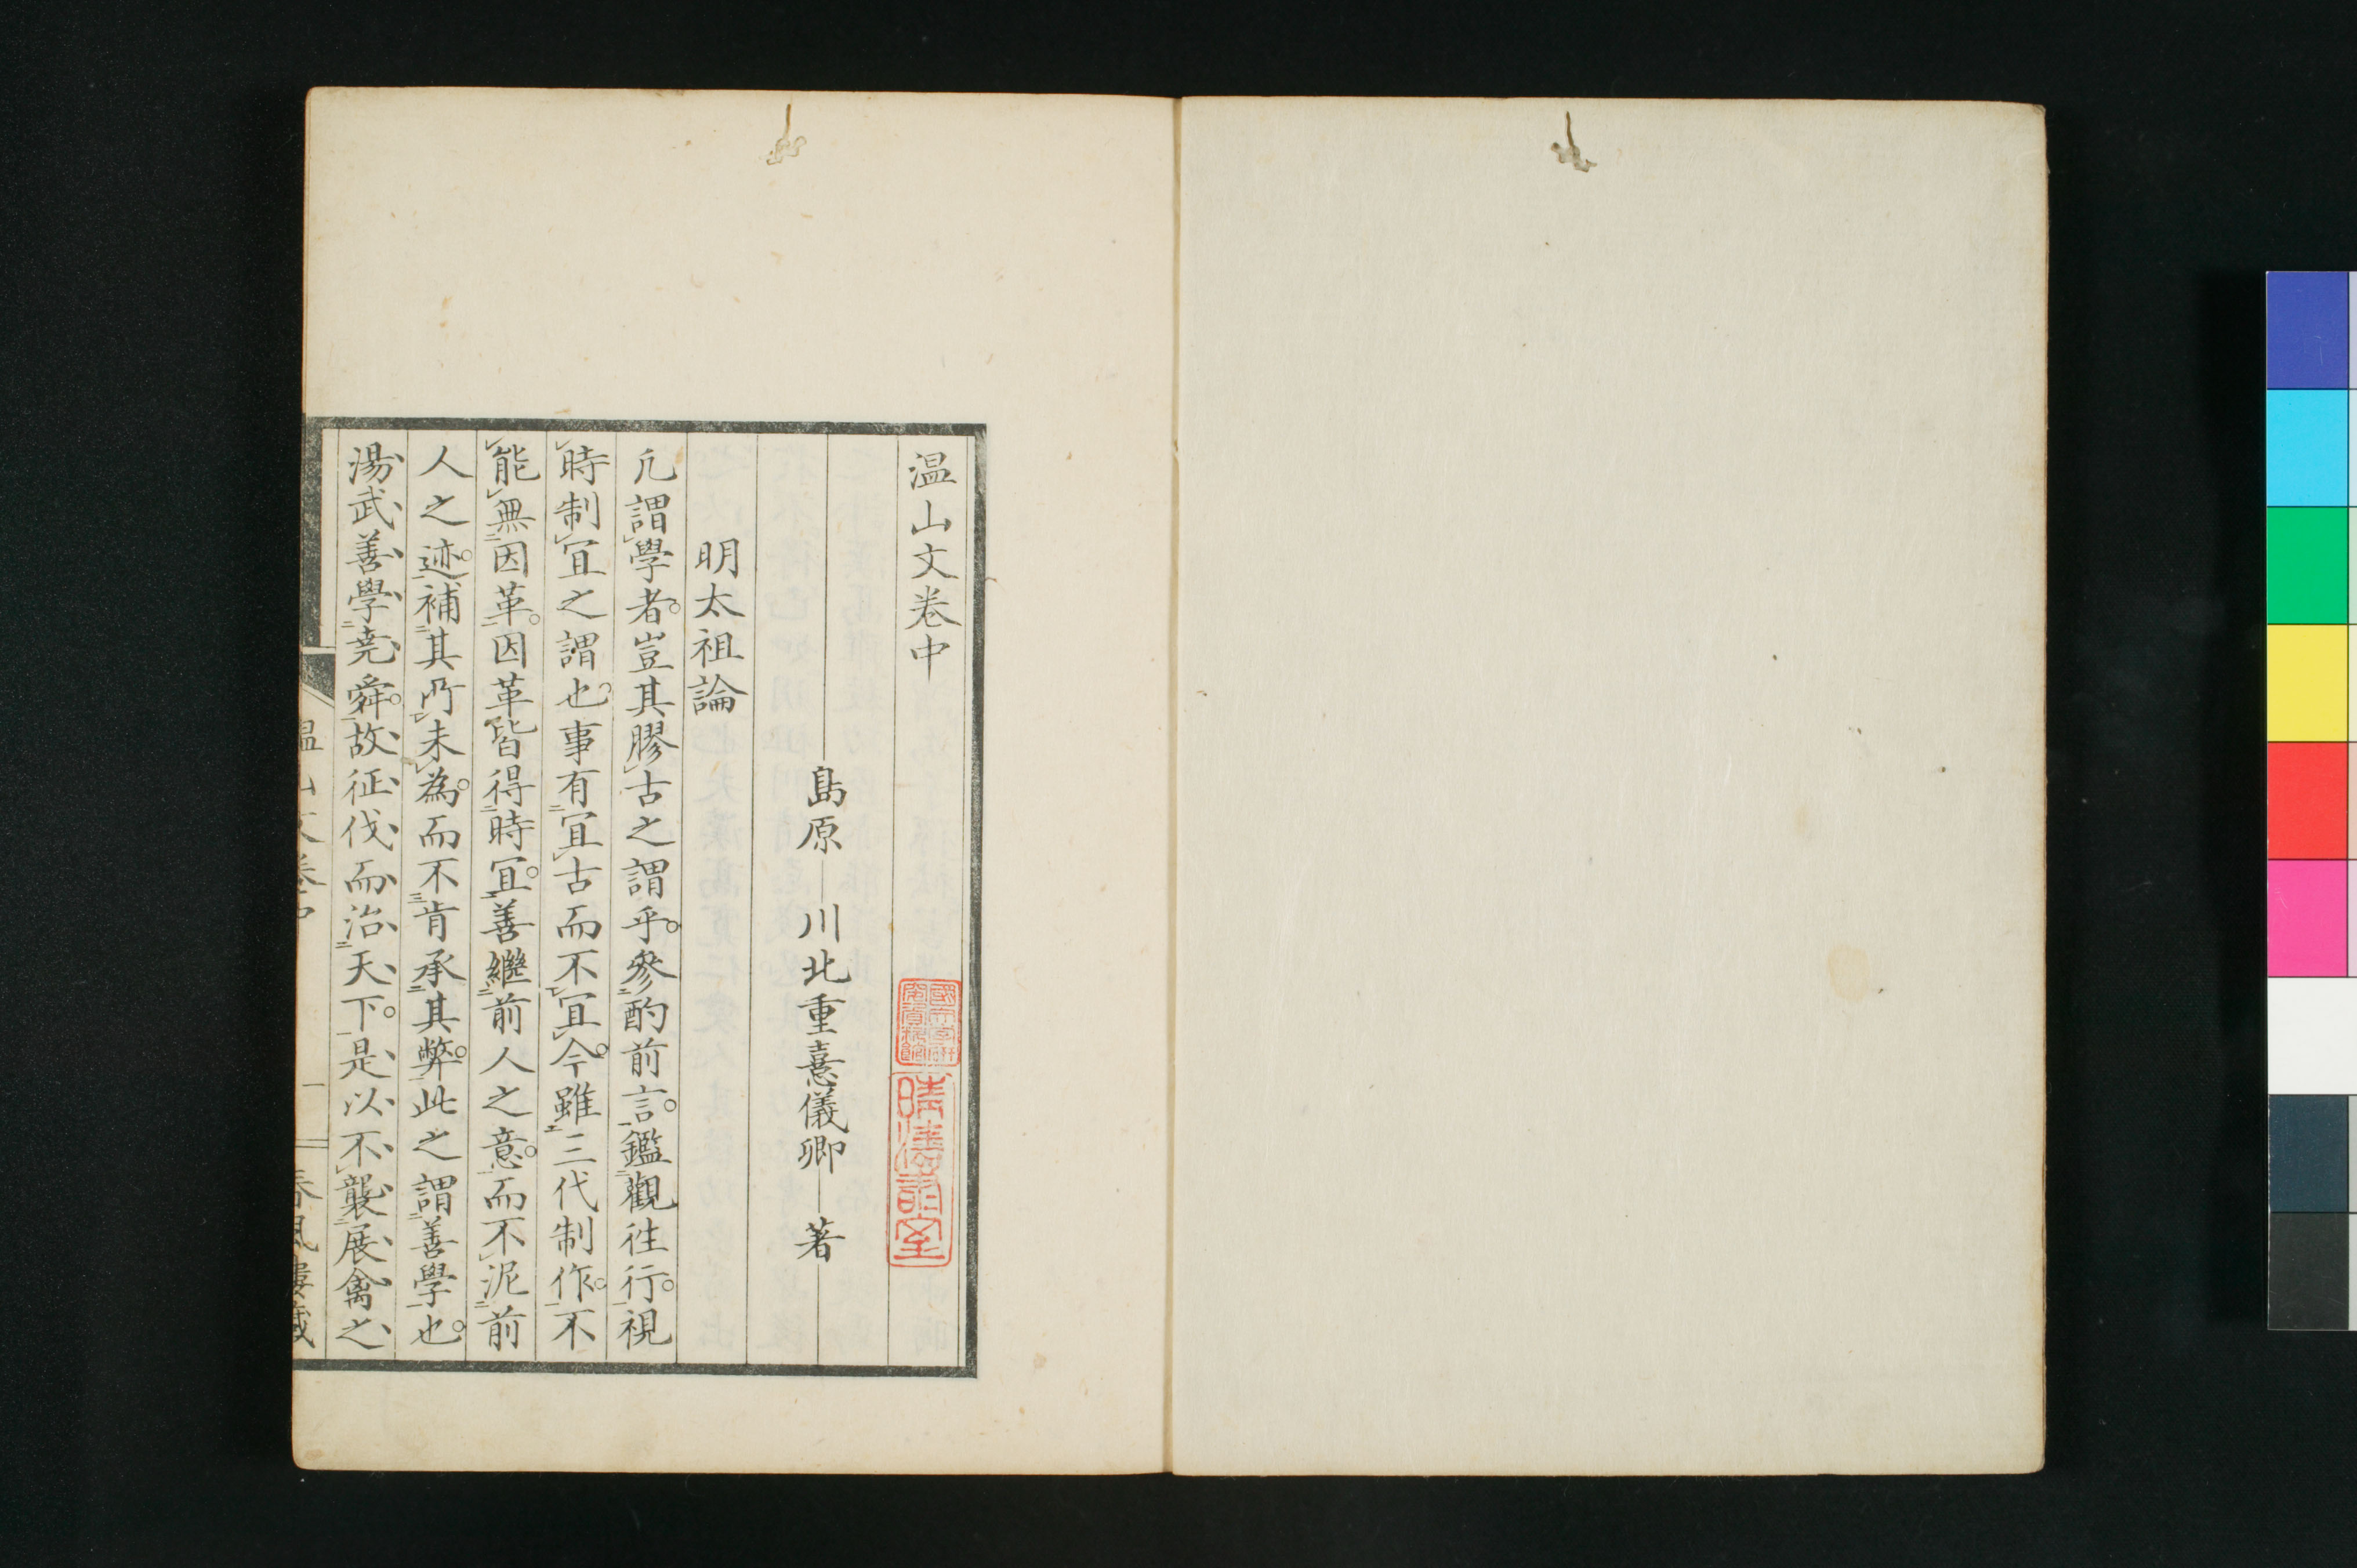 温山文卷中
島原 川北重憙儀卿 著
明太祖論
凢謂學者。豈其膠古之謂乎。參酌前言。鑑觀往行。視
時制宜之謂也。事有宜古而不宜今。雖三代制作。不
能無因革。因革皆得時宜。善繼前人之意。而不泥前
人之迹。補其所未為。而不肯承其弊。此之謂善學也。
湯武善學堯舜。故征伐而治天下。是以不襲展禽之
温山文卷中 一 春風樓藏
晴濤書室